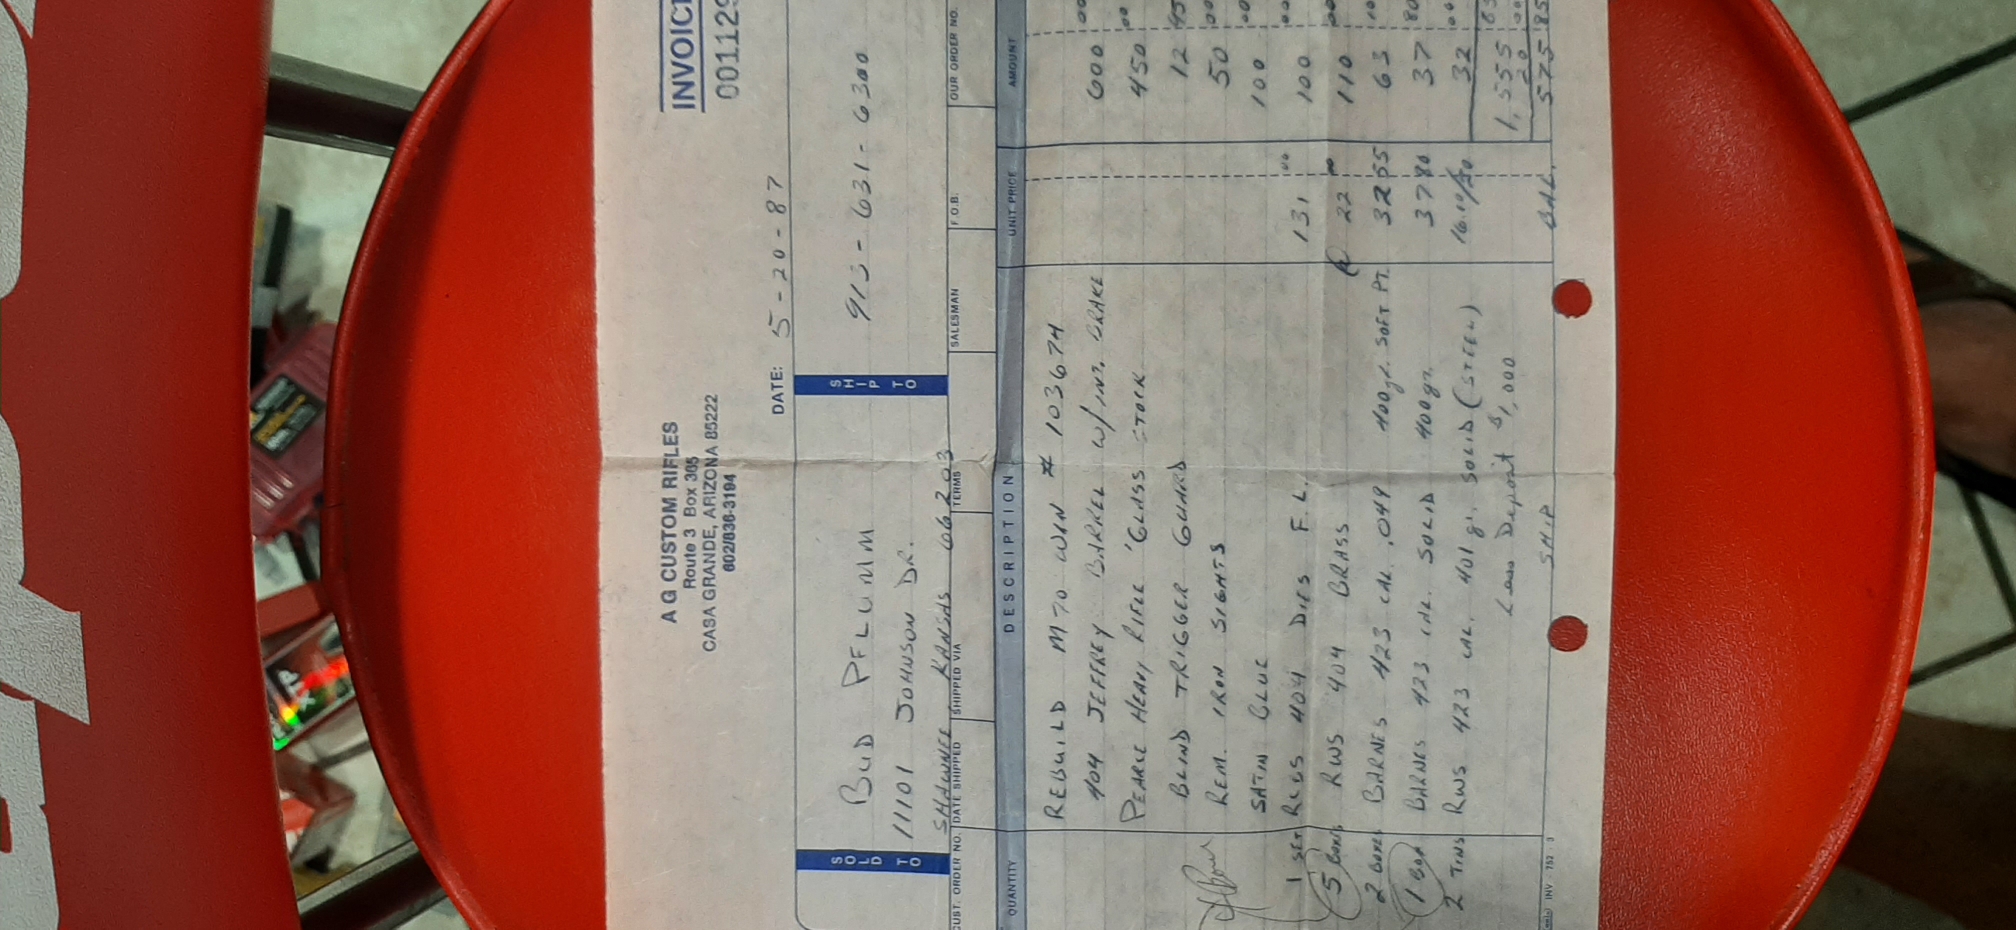 INVOICE
001129
A G CUSTOM RIFLES
Route 3 Box 365
CASA GRANDE, ARIZONA 85222
602/836-3194
DATE: 5-20-87
SOLD TO
BUD PFLUMM
11101 JOHNSON DR.
SHAWNEE, KANSAS 66203
SHIP TO
913-631-6300
CUST. ORDER NO. DATE SHIPPED SHIPPED VIA TERMS SALESMAN F.O.B. OUR ORDER NO.
QUANTITY DESCRIPTION UNIT PRICE AMOUNT
REBUILD M70 WIN # 103674
404 JEFFREY BARREL W/INT. BRAKE 600 00
PEARCE HEAVY RIFLE 'GLASS STOCK 450 00
BLIND TRIGGER GUARD 12 45
REM. IRON SIGHTS 50 00
SATIN BLUE 100 00
1 SET RCBS 404 DIES F.L. 131 00 100 00
5 BOXES RWS 404 BRASS @ 22 00 110 00
2 BOXES BARNES 423 CAL .049 400 gr. SOFT PT. 32 55 63 10
1 BOX BARNES 423 CAL. SOLID 400 gr. 37 80 37 80
2 TINS RWS 423 CAL. 401 gr. SOLID (STEEL) 16.10/20 32 00
Less Deposit $1,000 1,555
SHIP 20 00
BAL. 575 85
INV 752 3